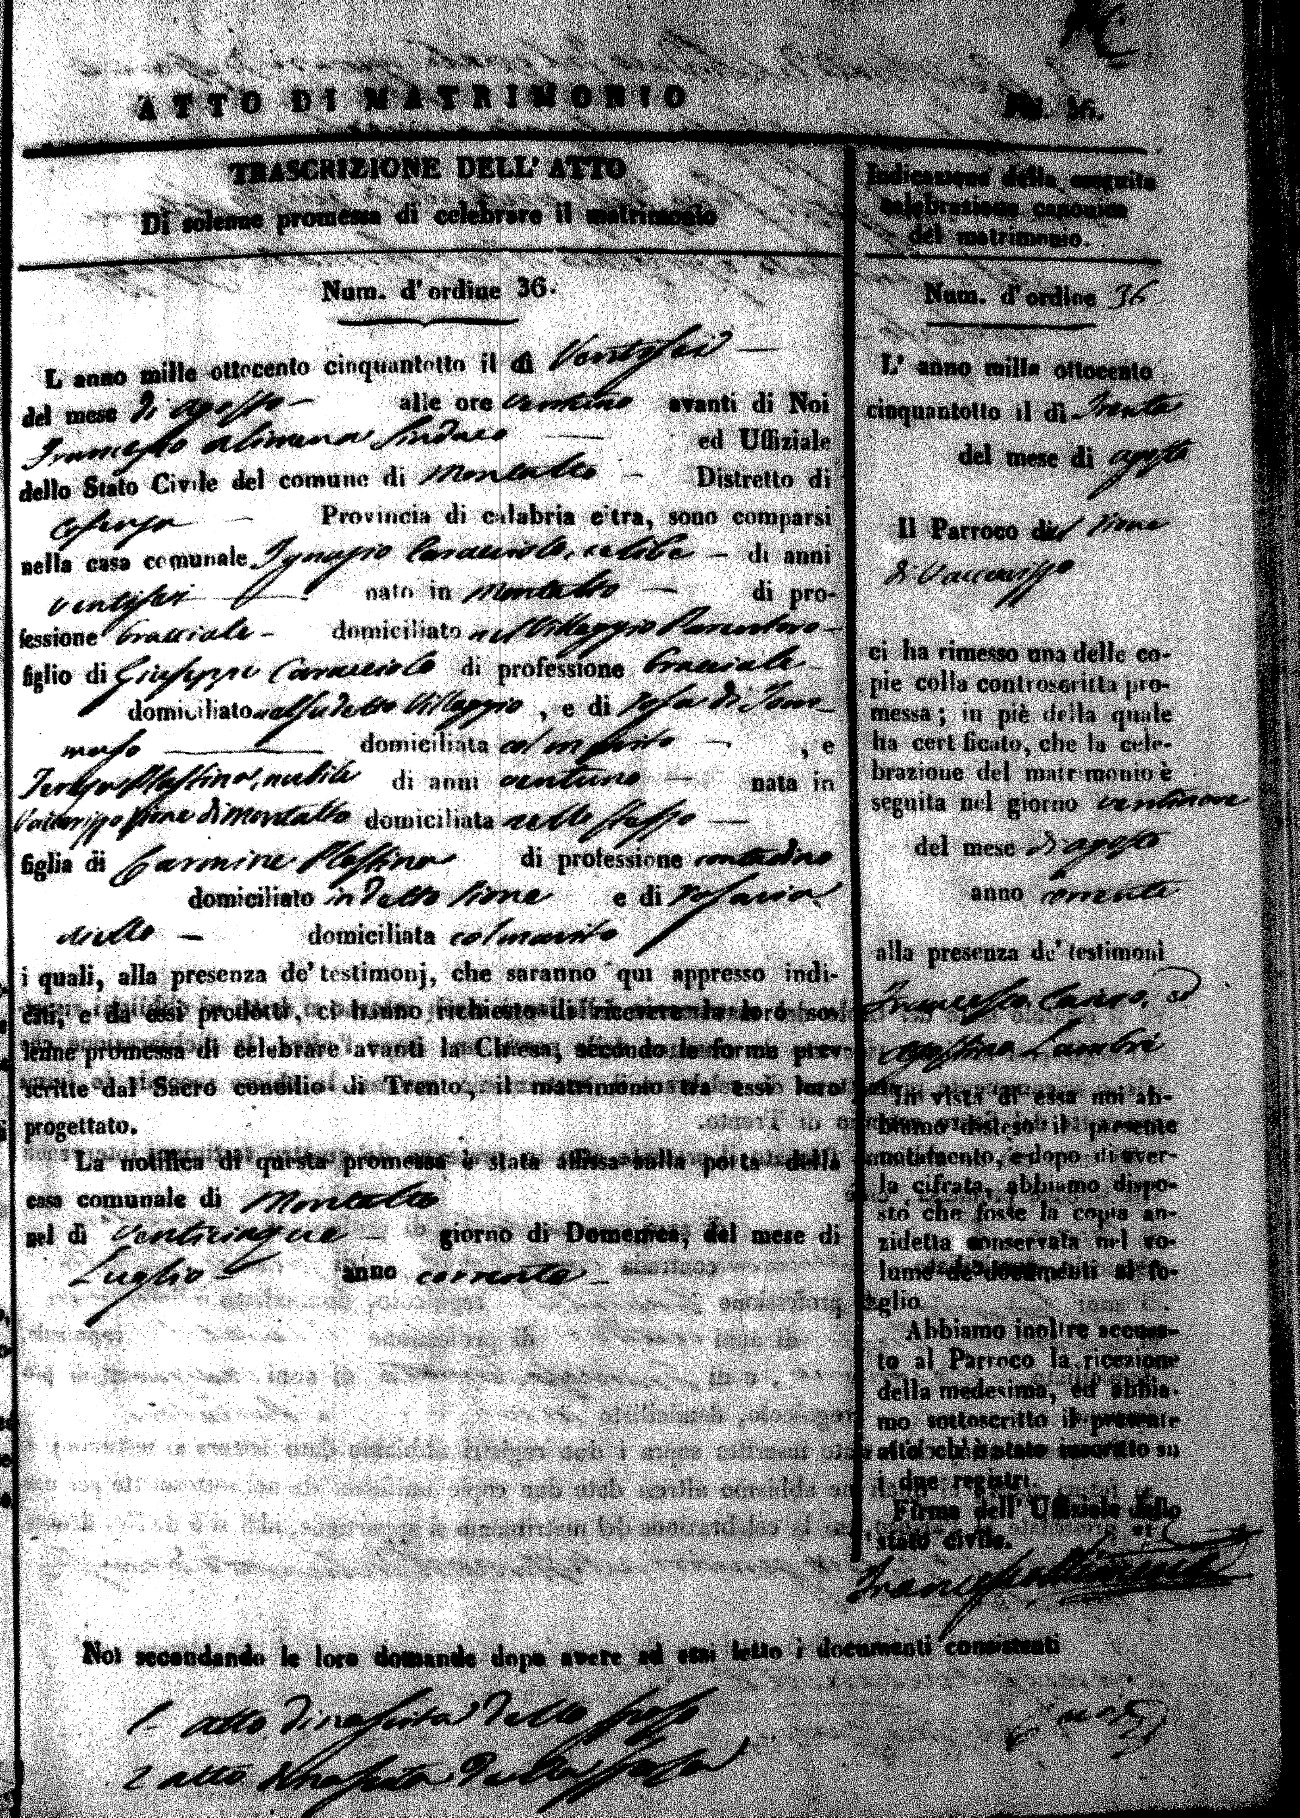 ATTO DI MATRIMONIO
36.
TRASCRIZIONE DELL' ATTO
Di solenne promessa di celebrare il matrimonio
Num. d'ordine 36.
L anno mille ottocento cinquantotto il dì Ventisei
del mese di agosto alle ore ventuno avanti di Noi
Francesco Alimena Sindaco ed Uffiziale
dello Stato Civile del comune di Montalto Distretto di
Cosenza Provincia di calabria citra, sono comparsi
nella casa comunale Ignazio Caracciolo, celibe di anni
ventisei nato in Montalto di pro-
fessione bracciale domiciliato nel Villaggio
figlio di Giuseppe Caracciolo di professione bracciale
domiciliato nel sudetto Villaggio, e di Rosa di Tom-
maso domiciliata col marito, e
nubile di anni ventuno nata in
Vaccarizzo rione di Montalto domiciliata nello stesso
figlia di Carmine di professione contadino
domiciliato in detto rione e di Rosaria
Aiello domiciliata col marito
i quali, alla presenza de' testimonj, che saranno qui appresso indi-
cati, e da essi prodotti, ci hanno richiesto di ricevere la loro so-
lenne promessa di celebrare avanti la Chiesa, secondo le forme pre-
scritte dal Sacro concilio di Trento, il matrimonio tra essi loro
progettato.
La notifica di questa promessa è stata affissa sulla porta della
casa comunale di Montalto
nel dì venticinque giorno di Domenica, del mese di
Luglio anno corrente
Indicazione della seguita
celebrazione canonica
del matrimonio.
Num. d'ordine 36
L' anno mille ottocento
cinquantotto il dì Trenta
del mese di agosto
Il Parroco del rione
di Vaccarizzo
ci ha rimesso una delle co-
pie colla controscritta pro-
messa; in piè della quale
ha certificato, che la cele-
brazione del matrimonio è
seguita nel giorno ventinove
del mese di agosto
anno corrente
alla presenza de' testimoni
Francesco Cairo, ed
Agostino Lambri
In vista di essa noi ab-
biamo disteso il presente
notamento, e dopo di aver-
la cifrata, abbiamo dispo-
sto che fosse la copia an-
zidetta conservata nel vo-
lume de' documenti al fo-
glio
Abbiamo inoltre accusa-
to al Parroco la ricezione
della medesima, ed abbia-
mo sottoscritto il presente
atto ch'è stato inscritto su
i due registri.
Firma dell' Uffiziale dello
stato civile.
Francesco Alimena
Noi secondando le loro domande dopo avere ad essi letto i documenti consistenti
1 atto di nascita dello sposo
2 atto di nascita della sposa